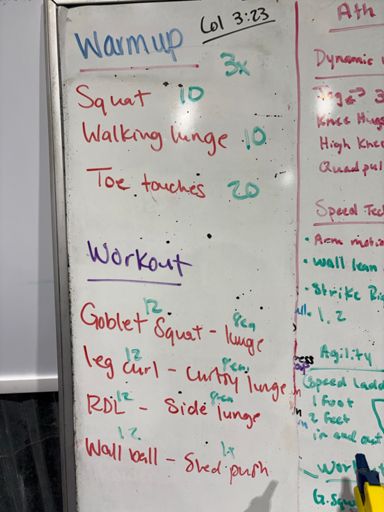 Col 3:23
Warmup
3x
Squat 10
Walking lunge 10
Toe touches 20
Workout
12 8ea
Goblet Squat - lunge
12 8ea
leg curl - Curtsy lunge
12 8ea
RDL - Side lunge
12 1x
Wall ball - Sled push
Ath
Dynamic
3
Knee Hugs
High Knee
Quad pul
Speed Tec
• Arm motio
• wall lean
• Strike
• 1, 2
Agility
Speed ladd
1 Foot
2 Feet
in and out
Work
G. Squ